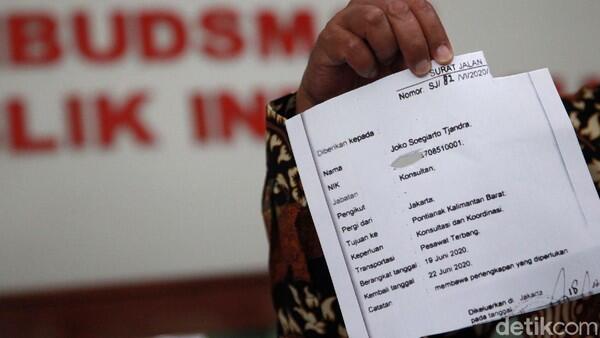 MBUDSMA
BLIK IN
SURAT JALAN
Nomor: SJ/ 82 /VI/2020/
Diberikan kepada
Nama Joko Soegiarto Tjandra.
NIK 708510001;
Jabatan Konsultan;
Pengikut
Pergi dari Jakarta.
Tujuan ke Pontianak Kalimantan Barat:
Keperluan Konsultasi dan Koordinasi.
Transportasi Pesawat Terbang.
Berangkat tanggal 19 Juni 2020.
Kembali tanggal 22 Juni 2020.
Catatan: membawa penengkapan yang diperlukan
Dikeluarkan di Jakarta
pada tanggal
detikcom